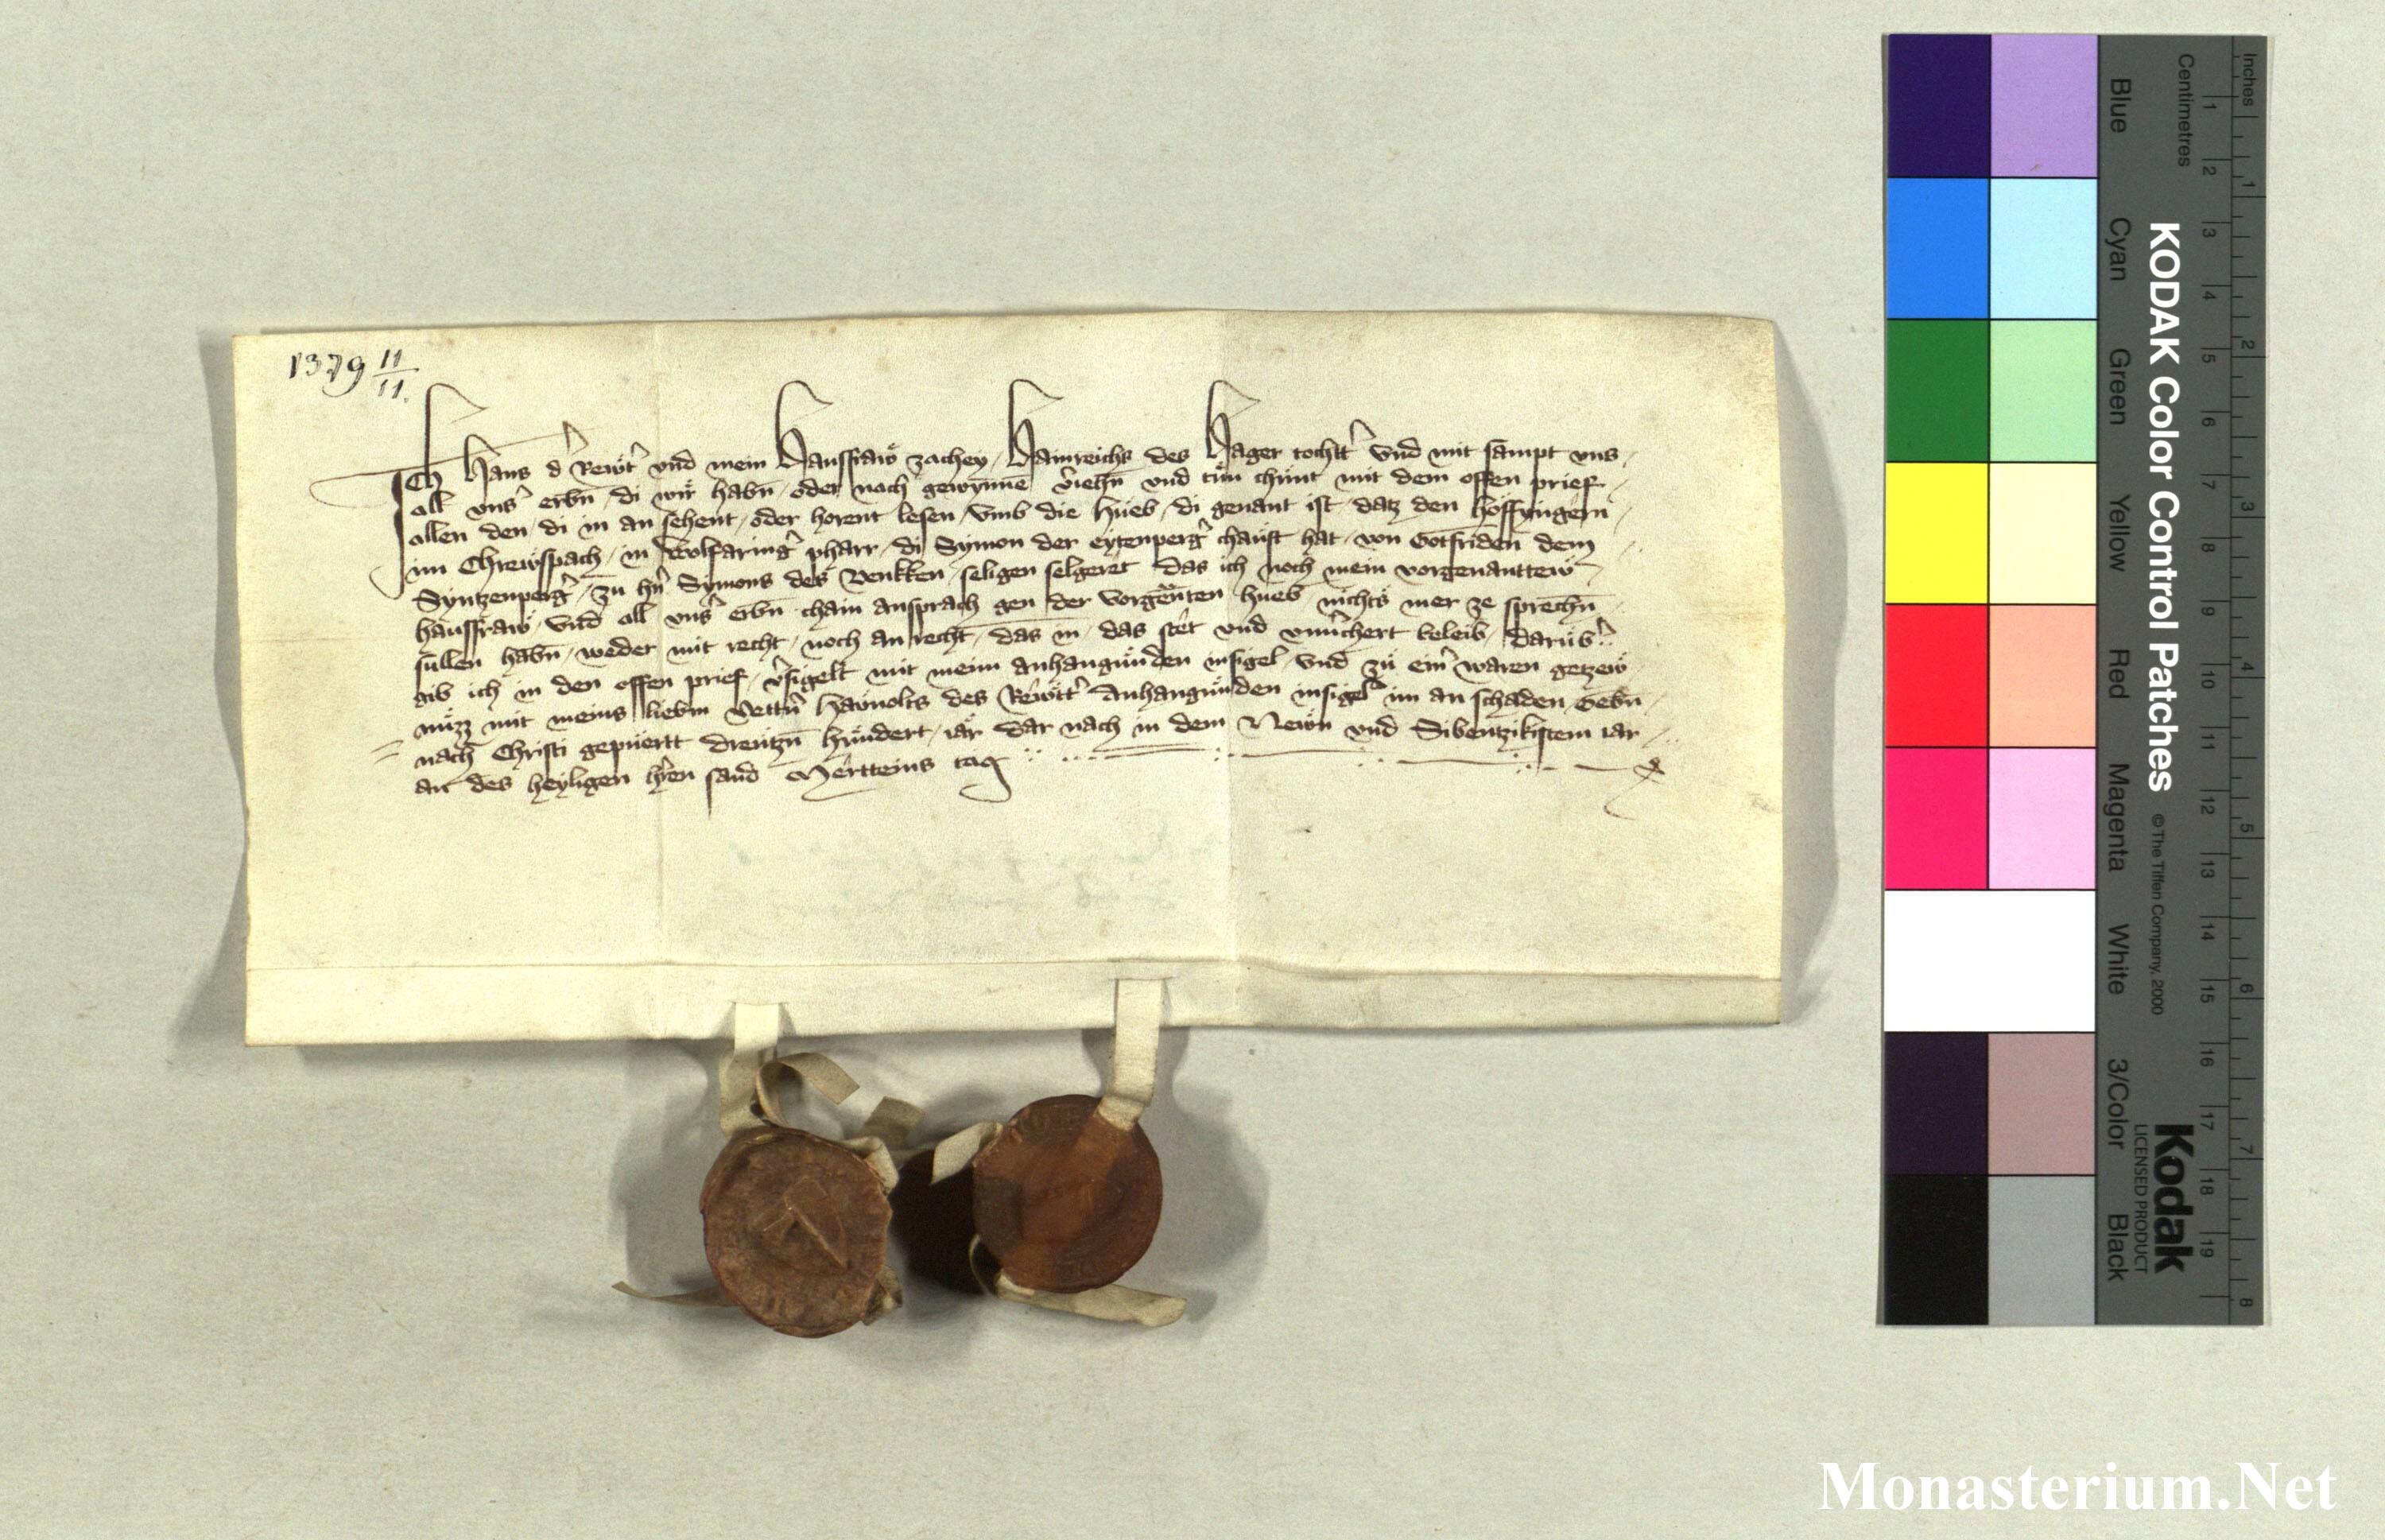 1379 11/11.
Ich Hans d' Rewt' vnd mein Hausfraw zachey / Hainreichs des Hager tocht' vnd mit sampt vns /
all vns' erbn̄ / di wir habn̄ / oder noch gewynne v'iehn̄ vnd tůn chunt mit dem offen prief /
allen den / di in an sehent / oder horent lesen / vmb die Hueb / di genant ist / datz den hoffyngern /
im Chrewspach / in Wolfaring' pharr / di Symon der eytenperg' chauft hat / von Gotfriden dem
Syntzenperg' / zu hn̄ Symons des Venkken / seligen selgeret das ich noch mein vorgenanttew
hausfraw / vnd all vns' erbn̄ chain ansprach gen der vorgen̄ten hueb nichts mer ze sprechn̄
sullen habn̄ / weder mit recht / noch an recht / das in / das stet vnd vnu'chert beleib / darub'
gib ich in den offen prief / v'sigelt mit meim anhangunden insigel / vnd zu ein' waren getzew
nuzz mit meins liebm vettn̄ Haunolts des Rewtt' Anhangunden insigel im an schaden / Gebn̄ /
nach Christi gepuertt dreutzn̄ hundert / iar dar nach in dem Newn vnd Sibentzikistem iar /
an des heyligen h'ren sand Mertteins tag
KODAK Color Control Patches
© The Tiffen Company, 2000
Kodak
LICENSED PRODUCT
Blue Cyan Green Yellow Red Magenta White 3/Color Black
Centimetres
1 2 3 4 5 6 7 8 9 10 11 12 13 14 15 16 17 18 19
Inches
1 2 3 4 5 6 7 8
Monasterium.Net